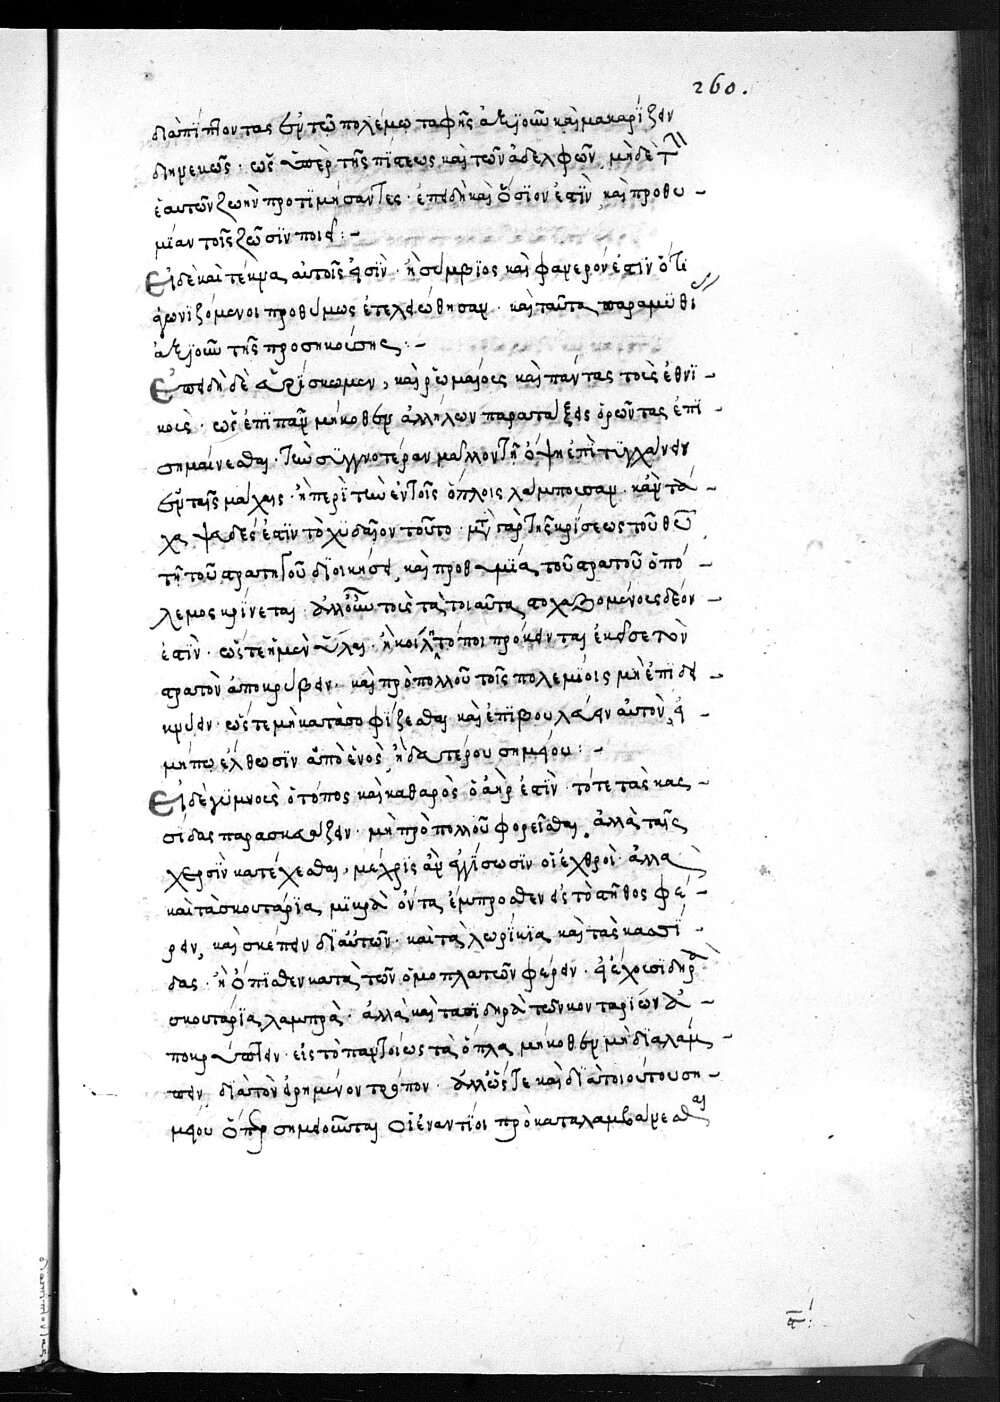 260.
διαπίπτοντας ἐν τῶ πολέμω ταφῆς ἀξιοῦν καὶ μακαρίζειν
διηνεκῶς· ὡς ὑπὲρ τῆς πίστεως καὶ τῶν ἀδελφῶν μηδὲ τὴν
ἑαυτῶν ζωὴν προτιμήσαντες· ἐπειδὴ καὶ ὅσϊον ἐστϊν, καὶ προθυ -
μίαν τοῖς ζῶσϊν ποιεῖ: -
Εἰ δὲ καὶ τέκνα αὐτοῖς εἰσὶν· ἢ σύμβϊος καὶ φανερόν ἐστϊν ὅτι
ἀγωνιζόμενοι προθύμως ἐτελειώθησαν· καὶ ταῦτα παραμυθί
ἀξιοῦν τῆς προσηκούσης: -
Ἐπειδὴ δὲ εὑρίσκωμεν, καὶ ῥωμαίοις καὶ πάντας τοὺς ἐθνϊ -
κοὺς· ὡς ἐπϊπαν μήκοθεν ἀλλήλων παρατάξεις ὁρῶντας ἐπϊ
σημαίνεσθαι· τὴν στυγνοτέραν μᾶλλον τῆ ὄψη ἐπιτϋγχάνειν
ἐν ταῖς μάχαις· ἤπερ ϊ τὴν ἐν τοῖς ὅπλοις λάμπουσαν· κἂν τά -
χα ψαδές ἐστϊν τὸ χϋδαῖον τοῦτο· μετὰ γὰρ τῆς κρίσεως τοῦ θεοῦ
τῆ τοῦ στρατηγοῦ διοικήσει, καὶ προθυμϊα τοῦ στρατοῦ ὁ πό -
λεμος κρίνεται· ἀλλ' οὖν τοὺς τὰ τοιαῦτα στοχαζομένους δέον
ἐστὶν· ὥστε ἢ μὲν ὕλαι· ἢ κοῖλοι τόποι πρόκεινται ἐκεῖσε τὸν
στρατὸν ἀποκρύβειν· καὶ πρὸ πολλοῦ τοῖς πολεμίοις μὴ ἐπιδει -
κνύειν· ὥστε μὴ κατασοφίζεσθαι καὶ ἐπιβουλεύειν αὐτόν, εἰ -
μήπω ἔλθωσϊν ἀπὸ ἑνὸς, ἢ δευτέρου σημείου: -
Εἰ δὲ γϋμνοὺς ὁ τόπος καὶ καθαρὸς ὁ ἀὴρ ἐστὶν· τότε τὰς κας -
σίδας παρασκευάζειν· μὴ πρὸ πολλοῦ φορεῖσθαι, ἀλλὰ ταῖς
χερσὶν κατέχεσθαι, μέχρϊς ἂν ἐγγίσωσϊν οἱ ἐχθροὶ· ἀλλὰ
καὶ τὰ σκουτάρϊα μϊκρὰ ὄντα ἔμπροσθεν εἰς τὸ στῆθος φέ -
ρειν, καὶ σκέπειν δι' αὐτῶν· καὶ τὰ λωρίκϊα καὶ τὰς κασσί
δας· ἢ ὄπϊσθεν κατὰ τῶν ὁμοπλατῶν φέρειν· εἰ ἔχουσι σιδηρὰ
σκουτάρϊα λαμπρὰ· ἀλλὰ καὶ τὰ σϊδηρὰ τῶν κονταρίων ἀ -
ποκρύπτειν· εἰς τὸ παντοίως τὰ ὅπλα μήκοθεν μὴ διαλάμ
πειν, διὰ τὸν εἰρημένον τρόπον· ἀλλ' ὥστε καὶ διὰ τοιούτου ση -
μείου ὅπερ σημειοῦνται οἱ ἐναντίοι προκαταλαμβάνεσθαι